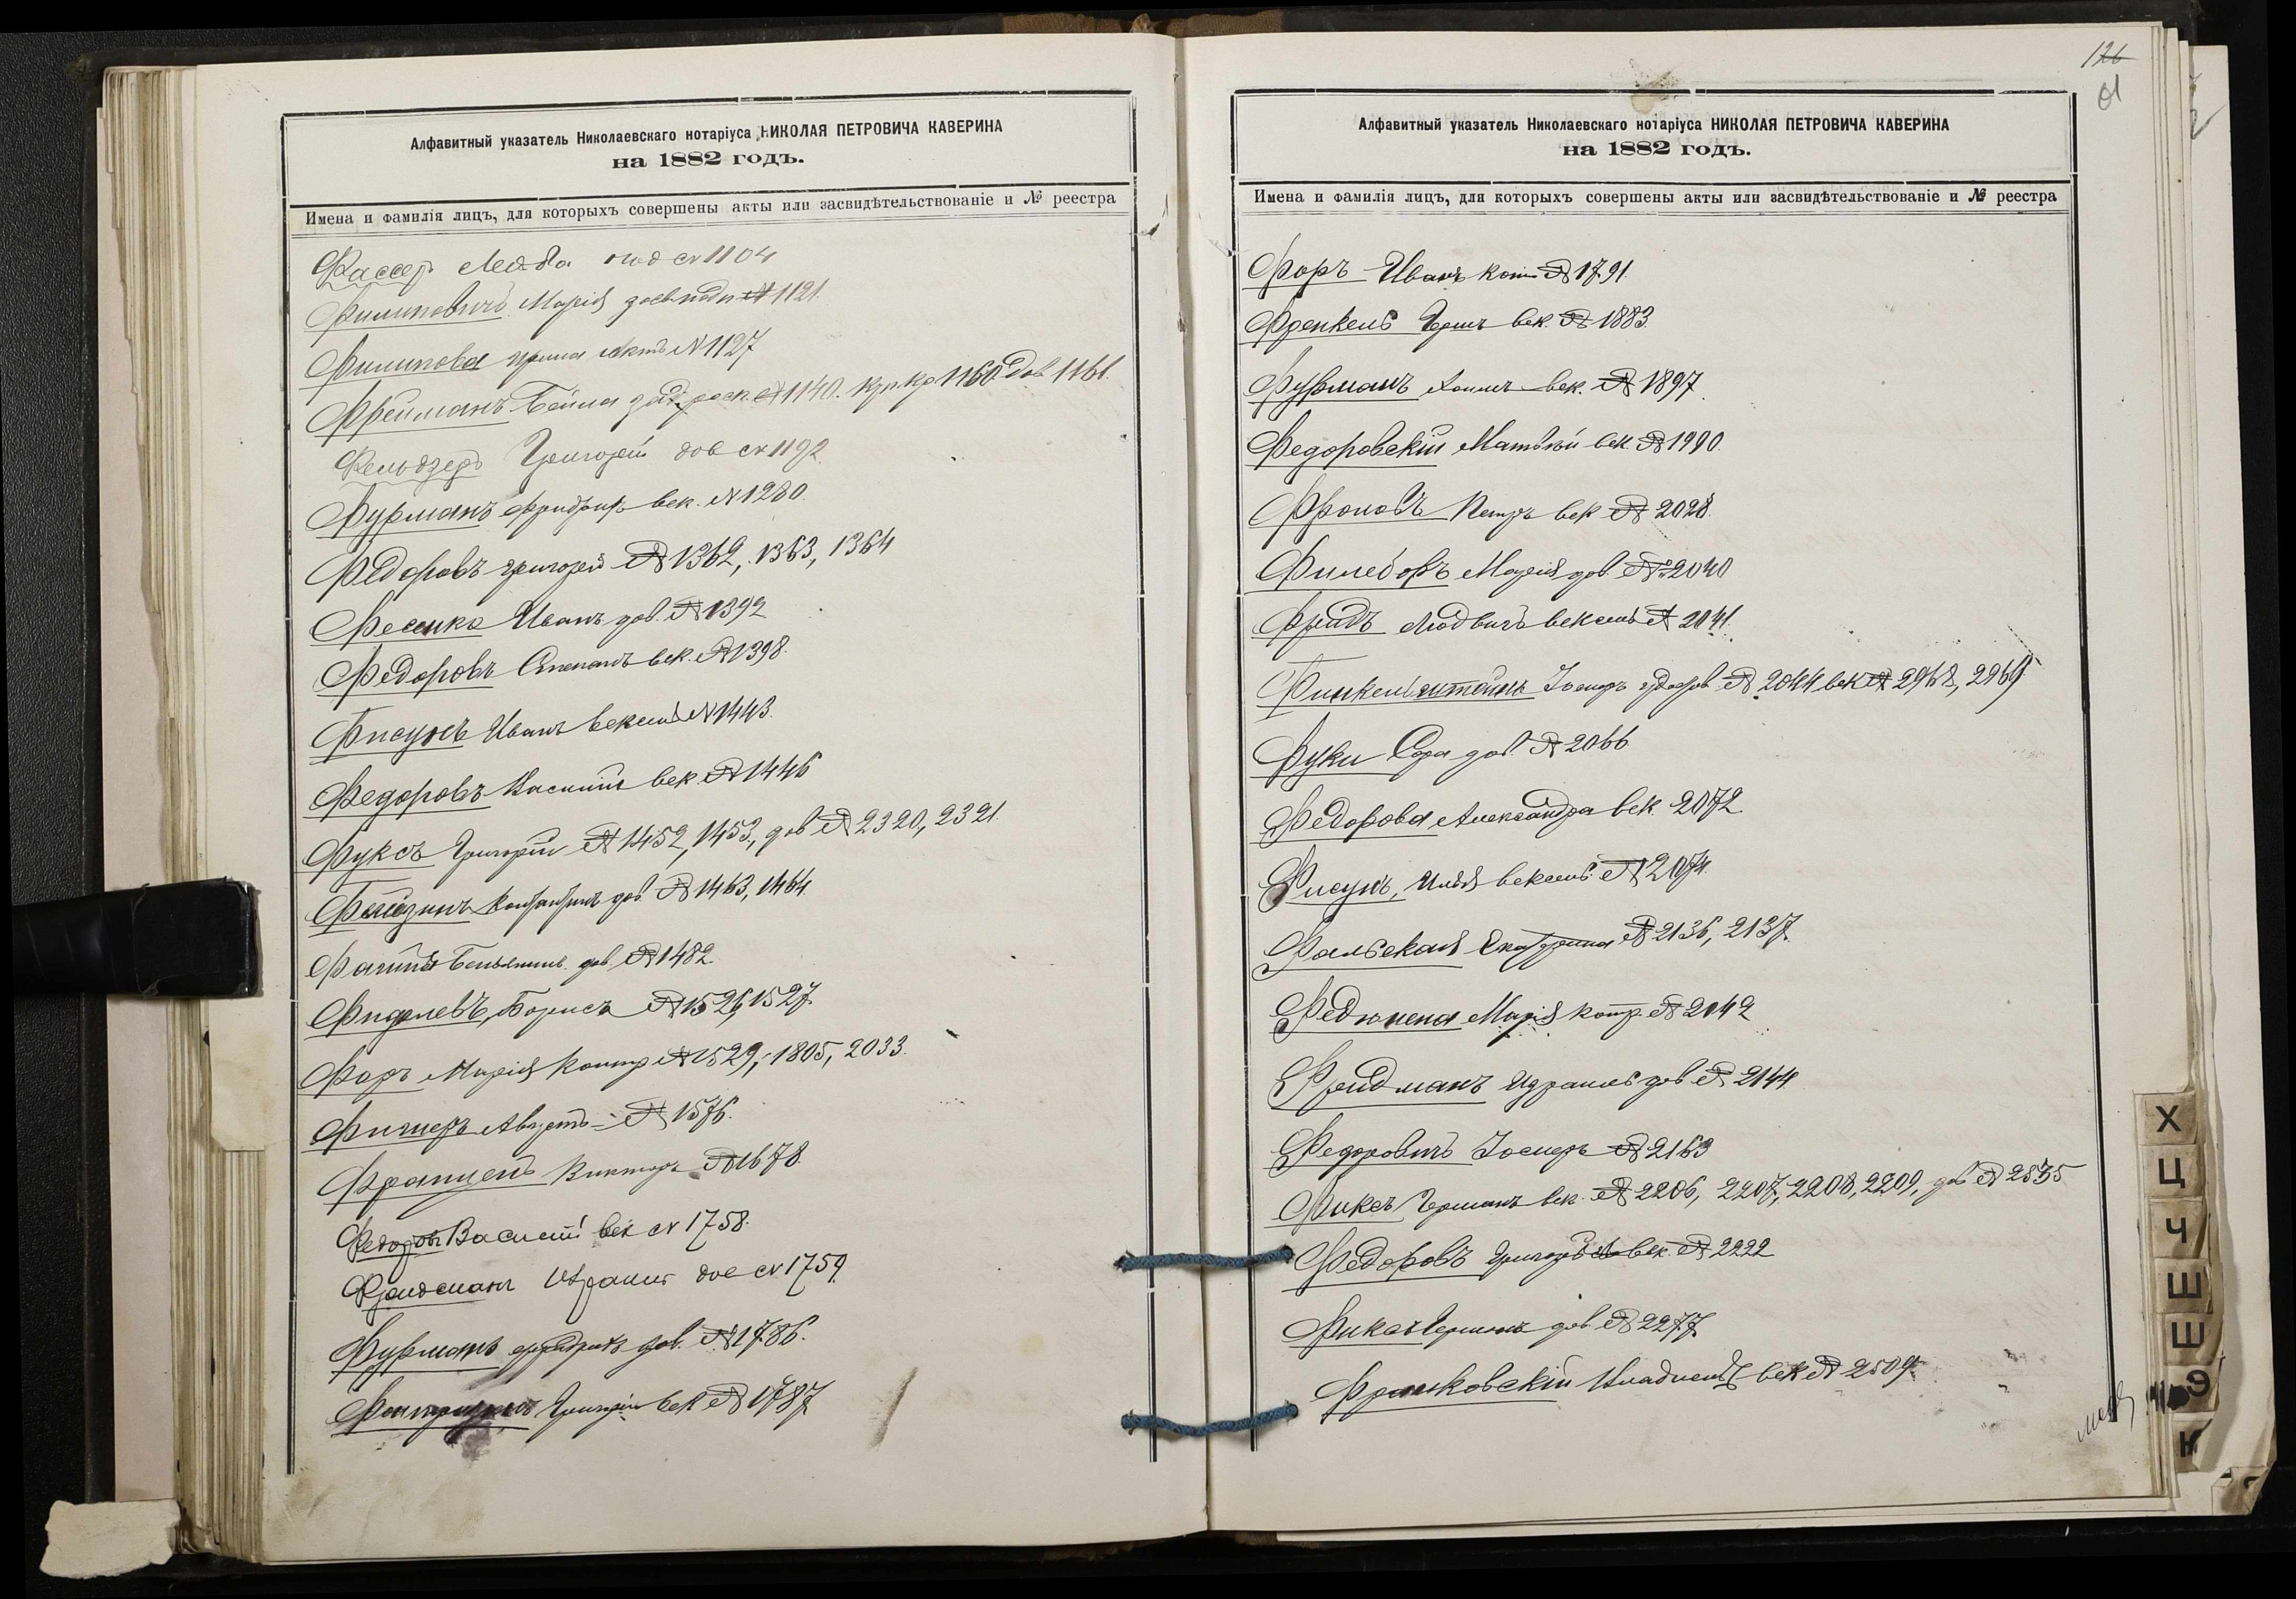 Алфавитный указатель Николаевскаго нотаріуса НИКОЛАЯ ПЕТРОВИЧА КАВЕРИНА
на 1882 годъ.
Имена и фамилія лицъ, для которыхъ совершены акты или засвидѣтельствованіе и № реестра
Фассер № 1104
Филиповичъ Марія № 1121
Филипова Ирина актъ № 1127
Фрейманъ Бейла № 1140. 1160 Дов 1161.
Григорій дов № 1192
Фурманъ Фридрихъ век. № 1280.
Федоровъ Григорій № 1362, 1363, 1364
Фесенко Иванъ дов. № 1392
Федоровъ Степанъ век. № 1398.
Фисунъ Иванъ вексель № 1443.
Федоровъ Василій век. № 1446
Фуксъ Григорій № 1452, 1453, дов № 2320, 2321.
дов. № 1463, 1464
дов. № 1482.
Борисъ № 1526, 1527.
Форъ Марія контр № 1529, 1805, 2033.
Фишеръ Августъ № 1576.
Францевъ Викторъ № 1678.
Федоров Василій век № 1758.
Фридман Израиль дов № 1759
Фурманъ Фридрихъ дов. № 1786.
Григорій век № 1787
126
Алфавитный указатель Николаевскаго нотаріуса НИКОЛАЯ ПЕТРОВИЧА КАВЕРИНА
на 1882 годъ.
Имена и фамилія лицъ, для которыхъ совершены акты или засвидѣтельствованіе и № реестра
Форъ Иванъ № 1791.
Френкель Гершъ век. № 1883.
Фурманъ век. № 1897.
Федоровскій Матвѣй век. № 1990.
Фроловъ Петръ век № 2028.
Марія дов. № 2040
Фридъ Людвигъ вексель № 2041.
Финкельштейнъ Іосифъ № 2044 век № 2968, 2969.
Сора дов. № 2066
Федорова Александра век. 2072
Фисунъ, Илья вексель № 2074.
Фальская Екатерина № 2136, 2137.
Марія контр. № 2142
Фридманъ Израиль дов № 2144
Федоровичъ Іосифъ № 2163
Фиксъ Германъ век. № 2206, 2207, 2208, 2209, дов № 2535
Федоровъ Григорій век. № 2222
Фиксъ Германъ дов. № 2277
Франковскій Владиславъ век № 2509.
Х
Ц
Ч
Ш
Щ
Э